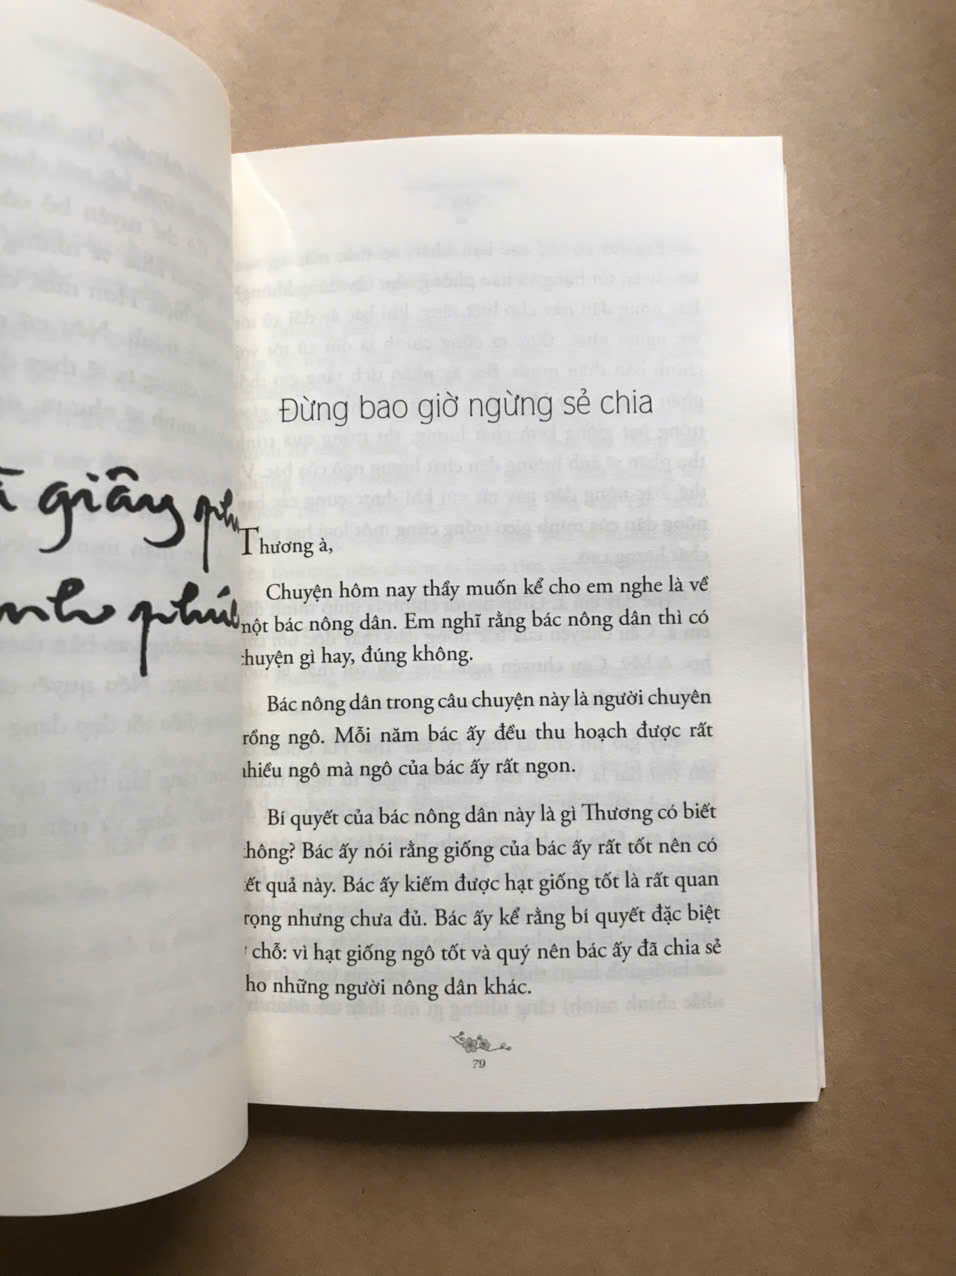 giây
Đừng bao giờ ngừng sẻ chia
Thương à,
Chuyện hôm nay thầy muốn kể cho em nghe là về
một bác nông dân. Em nghĩ rằng bác nông dân thì có
chuyện gì hay, đúng không.
Bác nông dân trong câu chuyện này là người chuyên
trồng ngô. Mỗi năm bác ấy đều thu hoạch được rất
nhiều ngô mà ngô của bác ấy rất ngon.
Bí quyết của bác nông dân này là gì Thương có biết
không? Bác ấy nói rằng giống của bác ấy rất tốt nên có
kết quả này. Bác ấy kiếm được hạt giống tốt là rất quan
trọng nhưng chưa đủ. Bác ấy kể rằng bí quyết đặc biệt
chỗ: vì hạt giống ngô tốt và quý nên bác ấy đã chia sẻ
cho những người nông dân khác.
79